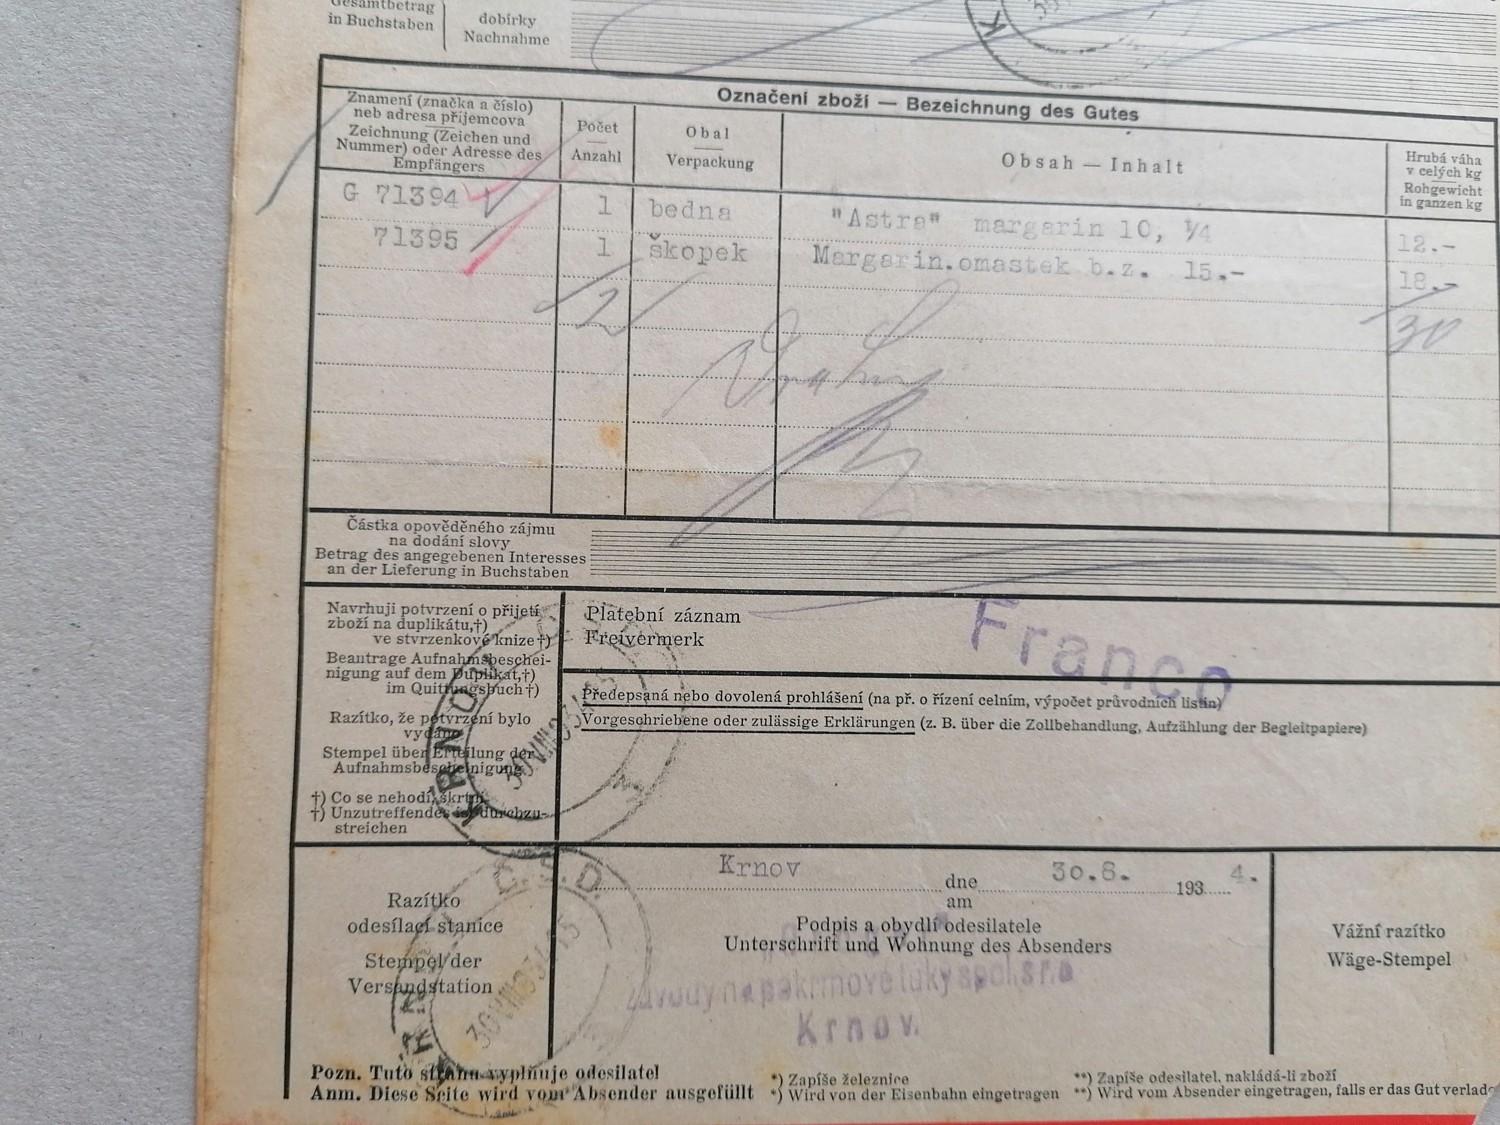 Gesamtbetrag
in Buchstaben
dobírky
Nachnahme
K
Označení zboží — Bezeichnung des Gutes
Znamení (značka a číslo)
neb adresa příjemcova
Zeichnung (Zeichen und
Nummer) oder Adresse des
Empfängers
Počet
Anzahl
Obal
Verpackung
Obsah — Inhalt
Hrubá váha
v celých kg
Rohgewicht
in ganzen kg
G 71394 1 bedna "Astra" margarin 10, ¼ 12.-
71395 1 škopek Margarin.omastek b.z. 15.- 18.-
2 30
Částka opověděného zájmu
na dodání slovy
Betrag des angegebenen Interesses
an der Lieferung in Buchstaben
Navrhuji potvrzení o přijetí
zboží na duplikátu,†)
ve stvrzenkové knize†)
Beantrage Aufnahmsbeschei-
nigung auf dem Duplikat,†)
im Quittungsbuch†)
Razítko, že potvrzení bylo
vydáno
Stempel über Erteilung der
Aufnahmsbescheinigung
†) Co se nehodí, škrtni
†) Unzutreffendes ist durchzu-
streichen
Platební záznam
Freivermerk
Franco
Předepsaná nebo dovolená prohlášení (na př. o řízení celním, výpočet průvodních listin)
Vorgeschriebene oder zulässige Erklärungen (z. B. über die Zollbehandlung, Aufzählung der Begleitpapiere)
KRNOV
Č.S.D.
Razítko
odesílací stanice
Stempel der
Versandstation
Krnov dne 30.8. 193 4.
am
Podpis a obydlí odesilatele
Unterschrift und Wohnung des Absenders
závody na pokrmové tuky spol. s r. o.
Krnov.
Vážní razítko
Wäge-Stempel
Pozn. Tuto stranu vyplňuje odesilatel
Anm. Diese Seite wird vom Absender ausgefüllt
*) Zapíše železnice
*) Wird von der Eisenbahn eingetragen
**) Zapíše odesilatel, nakládá-li zboží
**) Wird vom Absender eingetragen, falls er das Gut verlad